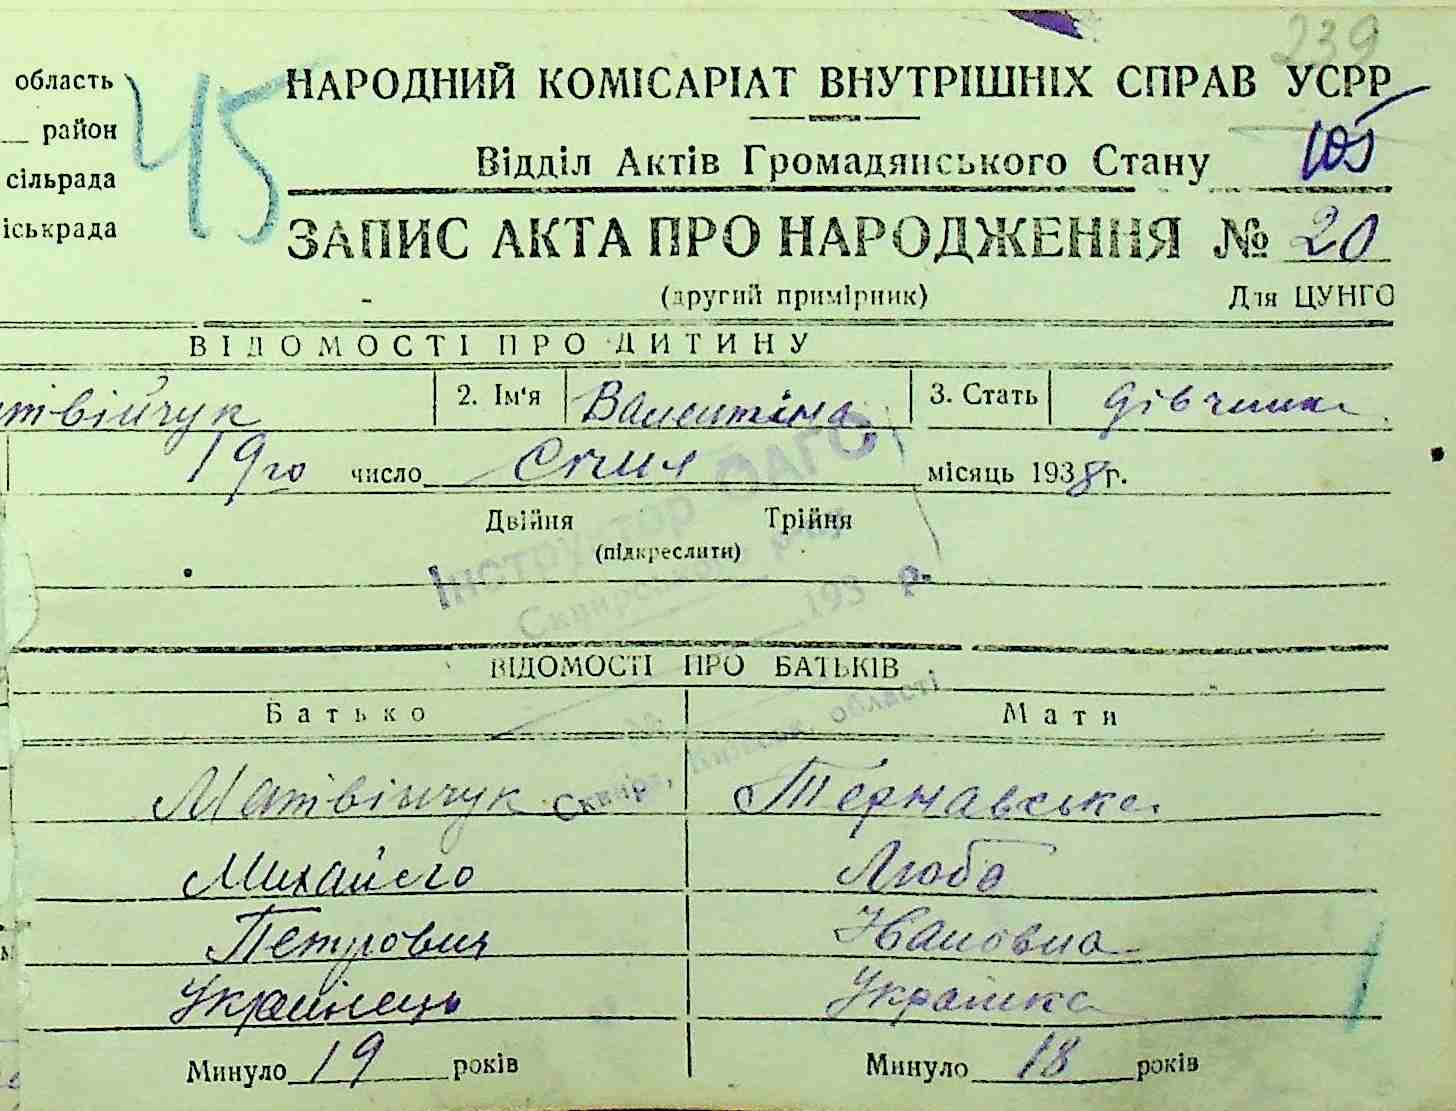 239
область 45 НАРОДНИЙ КОМІСАРІАТ ВНУТРІШНІХ СПРАВ УСРР
район
Відділ Актів Громадянського Стану 105
сільрада
іськрада ЗАПИС АКТА ПРО НАРОДЖЕННЯ № 20
(другий примірник) Для ЦУНГО
ВІДОМОСТІ ПРО ДИТИНУ
твійчук 2. Ім'я Валентіна 3. Стать дівчинка
19го число Січня місяць 1938 г.
Двійня Трійня
(підкреслити)
Інструктор ВАГС
Сквирського р-ну
193 р.
ВІДОМОСТІ ПРО БАТЬКІВ
Батько Мати
м. Сквира, Київськ. області
Матвійчук Тернавська
Михайло Люба
Петрович Івановна
Українець Українка
Минуло 19 років Минуло 18 років